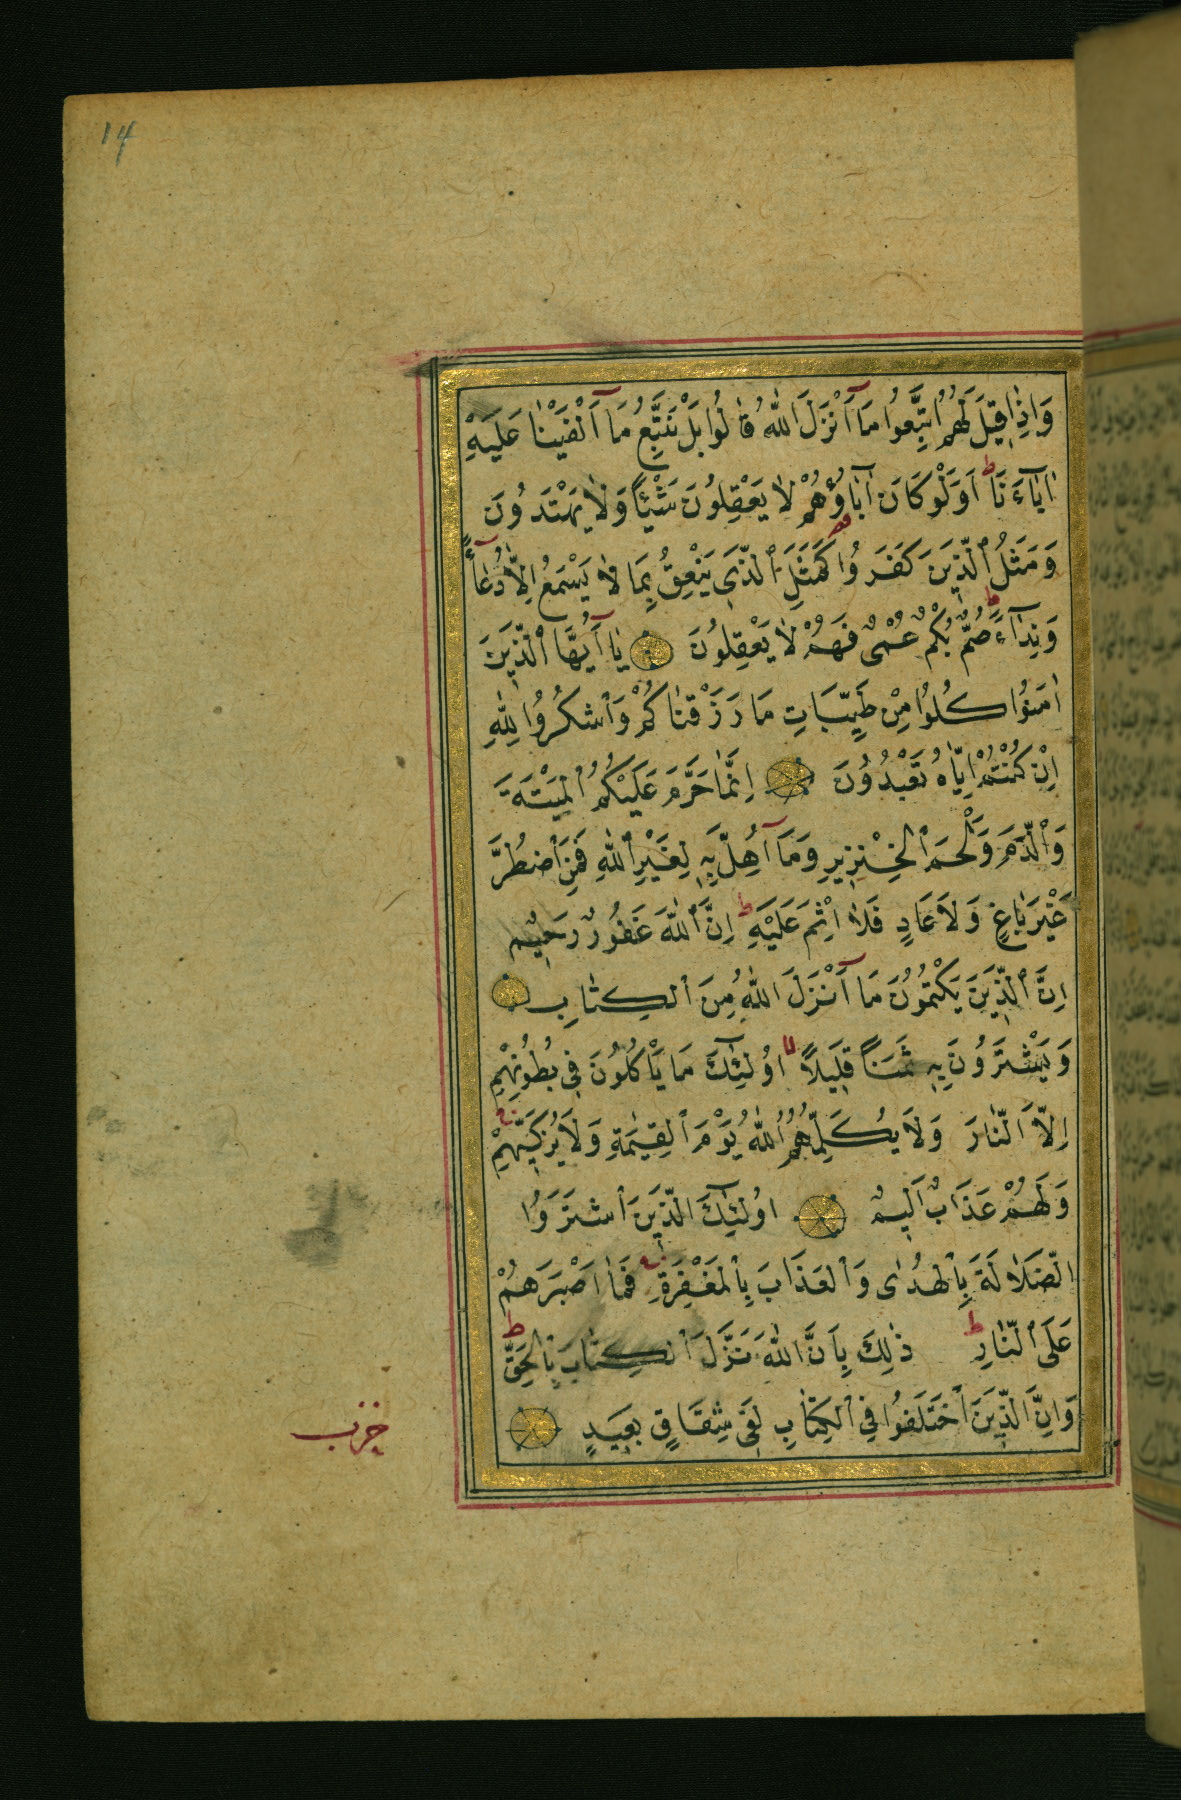 14
وَاِذَا قِيلَ لَهُمُ اتَّبِعُوا مَآ اَنْزَلَ اللّٰهُ قَالُوا بَلْ نَتَّبِعُ مَآ اَلْفَيْنَا عَلَيْهِ
اٰبَآءَنَا ط اَوَلَوْ كَانَ اٰبَاؤُهُمْ لَا يَعْقِلُونَ شَيْئًا وَلَا يَهْتَدُونَ
وَمَثَلُ الَّذِينَ كَفَرُوا كَمَثَلِ الَّذِي يَنْعِقُ بِمَا لَا يَسْمَعُ اِلَّا دُعَآءً
وَنِدَآءً ط صُمٌّ بُكْمٌ عُمْىٌ فَهُمْ لَا يَعْقِلُونَ يَآ اَيُّهَا الَّذِينَ
اٰمَنُوا كُلُوا مِنْ طَيِّبَاتِ مَا رَزَقْنَاكُمْ وَاشْكُرُوا لِلّٰهِ
اِنْ كُنْتُمْ اِيَّاهُ تَعْبُدُونَ اِنَّمَا حَرَّمَ عَلَيْكُمُ الْمَيْتَةَ
وَالدَّمَ وَلَحْمَ الْخِنْزِيرِ وَمَآ اُهِلَّ بِهِ لِغَيْرِ اللّٰهِ فَمَنِ اضْطُرَّ
غَيْرَ بَاغٍ وَلَا عَادٍ فَلَا اِثْمَ عَلَيْهِ ط اِنَّ اللّٰهَ غَفُورٌ رَحِيمٌ
اِنَّ الَّذِينَ يَكْتُمُونَ مَآ اَنْزَلَ اللّٰهُ مِنَ الْكِتَابِ
وَيَشْتَرُونَ بِهِ ثَمَنًا قَلِيلًا لا اُولٰئِكَ مَا يَاْكُلُونَ فِي بُطُونِهِمْ
اِلَّا النَّارَ وَلَا يُكَلِّمُهُمُ اللّٰهُ يَوْمَ الْقِيٰمَةِ وَلَا يُزَكِّيهِمْ
وَلَهُمْ عَذَابٌ اَلِيمٌ اُولٰئِكَ الَّذِينَ اشْتَرَوُا
الضَّلَالَةَ بِالْهُدٰى وَالْعَذَابَ بِالْمَغْفِرَةِ فَمَا اَصْبَرَهُمْ
عَلَى النَّارِ ط ذٰلِكَ بِاَنَّ اللّٰهَ نَزَّلَ الْكِتَابَ بِالْحَقِّ ط
وَاِنَّ الَّذِينَ اخْتَلَفُوا فِي الْكِتَابِ لَفِى شِقَاقٍ بَعِيدٍ
حزب